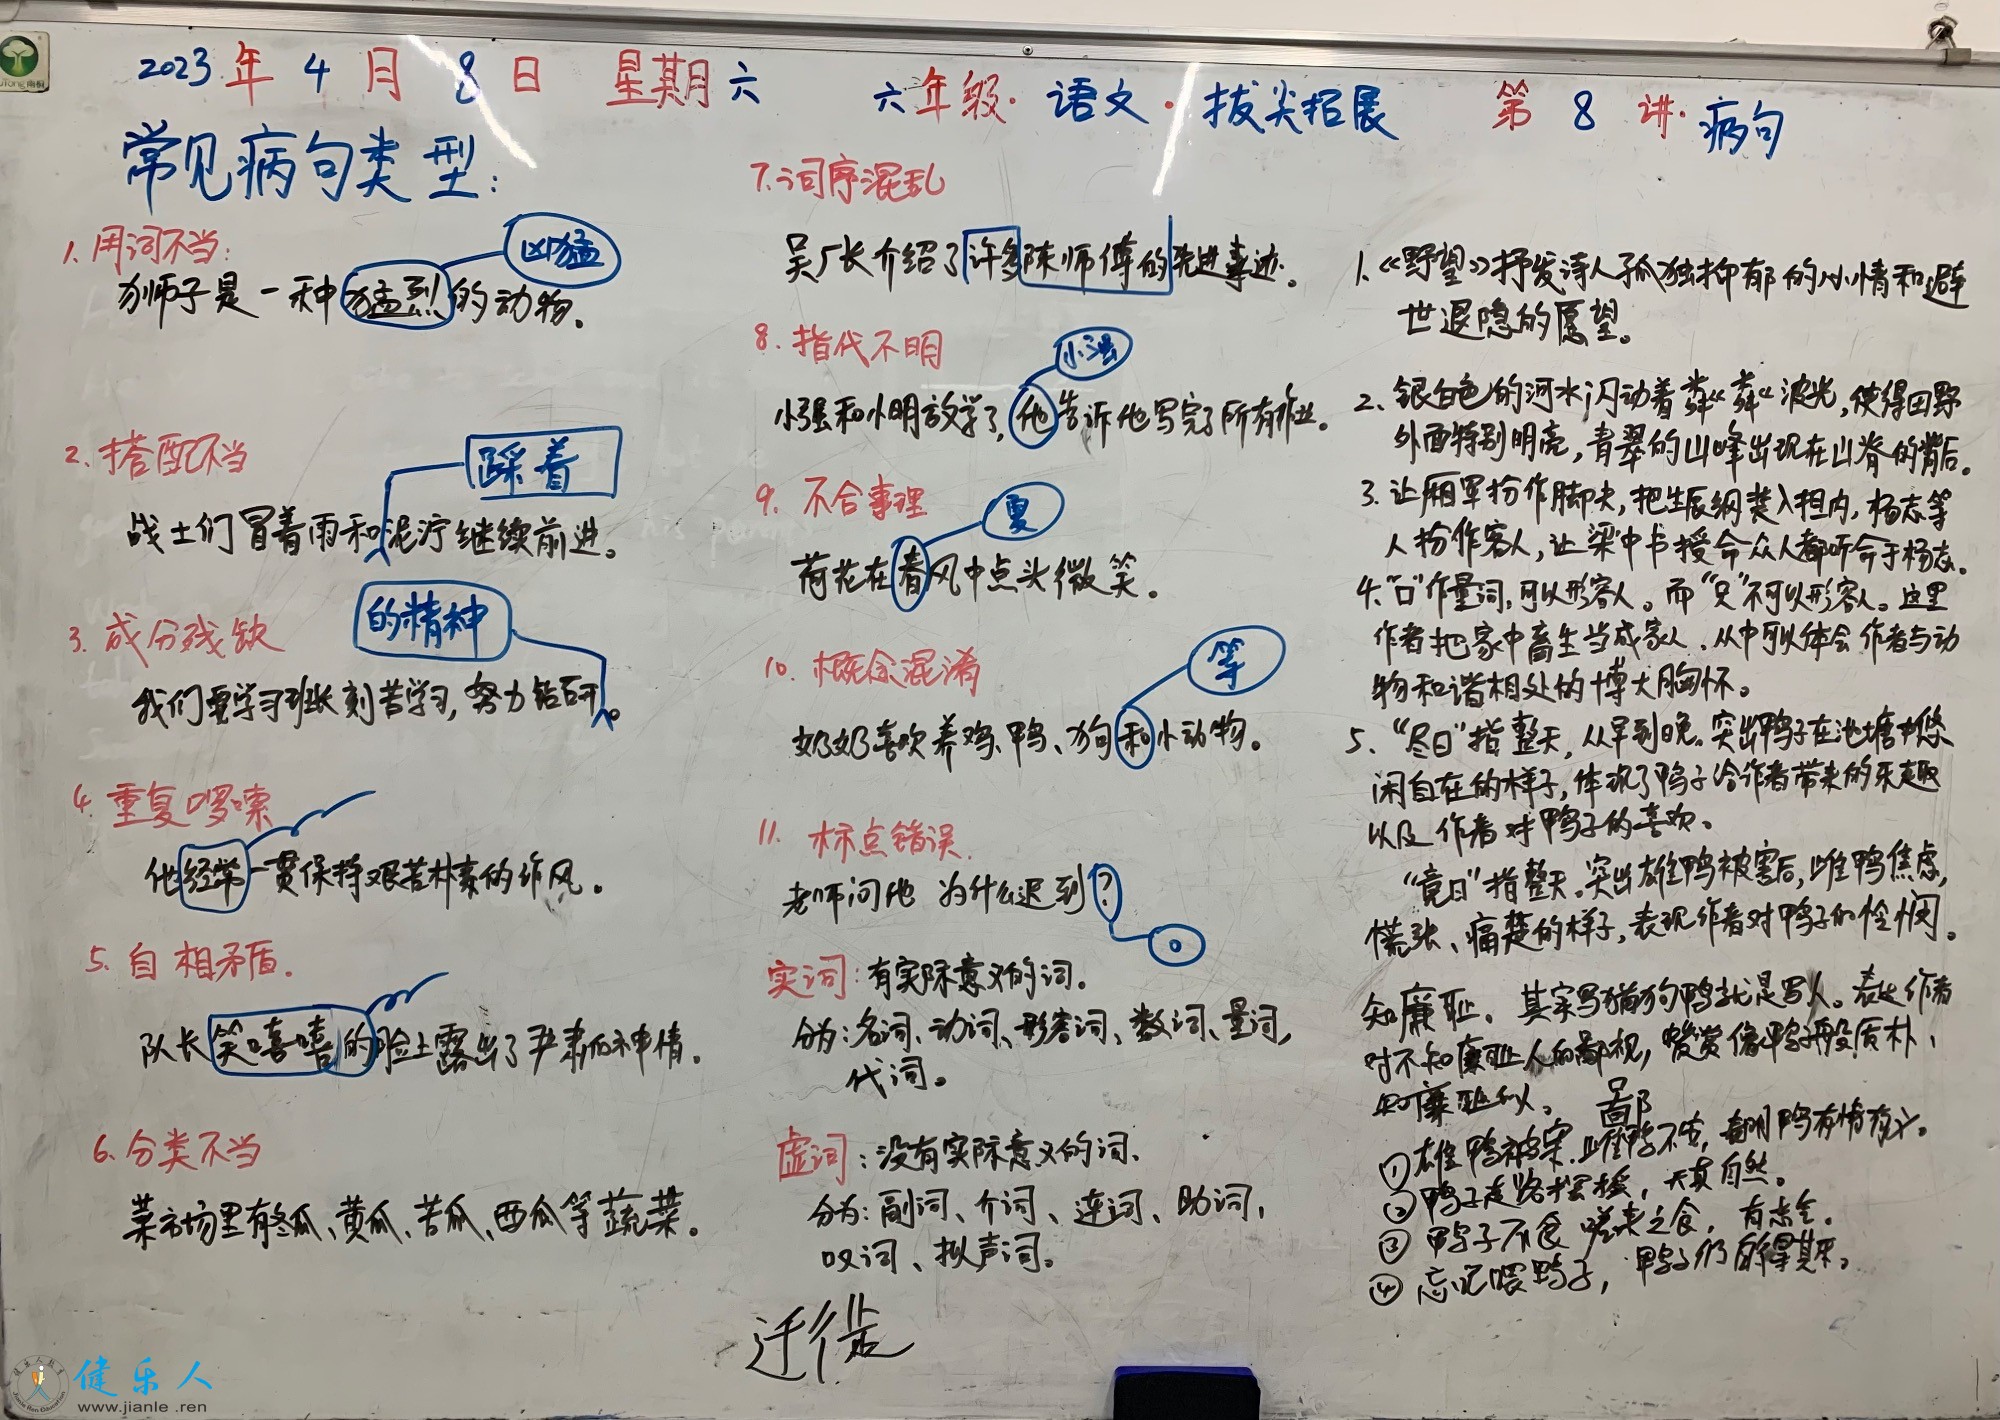 2023年4月8日 星期六 六年级·语文·拔尖拓展 第8讲·病句
常见病句类型:
1. 用词不当:
凶猛
狮子是一种猛烈的动物。
2. 搭配不当
踩着
战士们冒着雨和泥泞继续前进。
的精神
3. 成分残缺
我们要学习班长刻苦学习,努力钻研。
4. 重复啰嗦
他经常一贯保持艰苦朴素的作风。
5. 自相矛盾.
队长笑嘻嘻的脸上露出了严肃的神情。
6. 分类不当
菜市场里有冬瓜、黄瓜、苦瓜、西瓜等蔬菜。
7. 词序混乱
吴厂长介绍了许多陈师傅的先进事迹。
8. 指代不明
小强
小强和小明放学了,他告诉他写完了所有作业。
9. 不合事理
夏
荷花在春风中点头微笑。
10. 概念混淆
等
奶奶喜欢养鸡、鸭、狗和小动物。
11. 标点错误.
老师问他 为什么迟到?
。
实词:有实际意义的词。
分为:名词、动词、形容词、数词、量词,
代词。
虚词:没有实际意义的词、
分为:副词、介词、连词、助词,
叹词、拟声词。
迁徙
1.《野望》抒发诗人孤独抑郁的心情和避
世退隐的愿望。
2、银白色的河水闪动着粼粼波光,使得田野
外面特别明亮,青翠的山峰出现在山脊的背后。
3. 让厢军扮作脚夫,把生辰纲装入担内,杨志等
人扮作客人,让梁中书授命众人都听命于杨志。
4、“口”作量词,可以形容人。而“只”不可以形容人。这里
作者把家中畜生当成家人、从中可以体会作者与动
物和谐相处的博大胸怀。
5、“尽日”指整天,从早到晚。突出鸭子在池塘中悠
闲自在的样子,体现了鸭子给作者带来的乐趣
以及作者对鸭子的喜欢。
“竟日”指整天。突出雄鸭被害后,雌鸭焦虑,
慌张、痛楚的样子,表现作者对鸭子的怜悯。
知廉耻。其实写猫狗鸭就是写人。表达作者
对不知廉耻人的鄙视,赞赏像鸭子般质朴、
知廉耻的人。 鄙
① 雄鸭被害.雌鸭不安,表明鸭有情有义。
② 鸭子走路摆摇,天真自然。
③ 鸭子不食嗟来之食,有志气。
④ 忘记喂鸭子,鸭子们
健乐人
www.jianle.ren